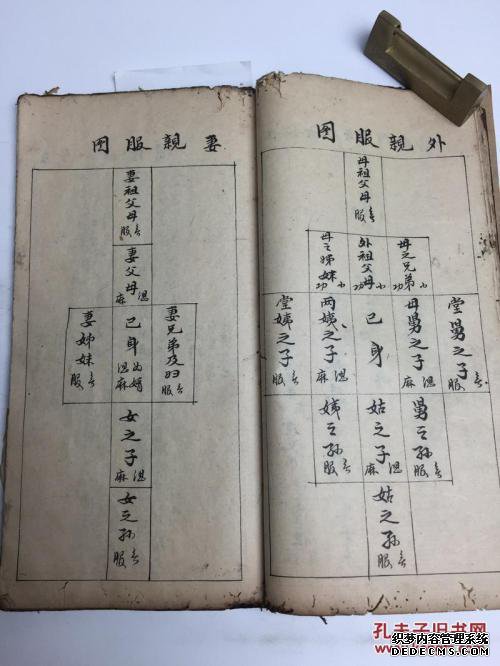 外親服图
母祖父母 无服
母之兄弟 小功
外祖父母 小功
母之姊妹 小功
堂舅之子 无服
母舅之子 缌麻
己身
两姨之子 缌麻
堂姨之子 无服
舅之孙 无服
姑之子 缌麻
姨之孙 无服
姑之孙 无服
妻親服图
妻祖父母 无服
妻父母 缌麻
妻兄弟及妇 无服
己身 为婿 缌麻
妻姊妹 无服
女之子 缌麻
女之孙 无服
孔夫子旧书网
织梦内容管理系统
DEDECMS.COM